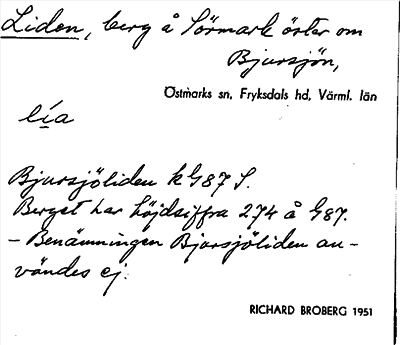 Liden, berg å Sörmark öster om
Bjursjön,
Östmarks sn, Fryksdals hd, Värml. län
lía
Bjursjöliden k G87 S.
Berget har höjdsiffra 274 å G87.
– Benämningen Bjursjöliden an-
vändes ej.
RICHARD BROBERG 1951